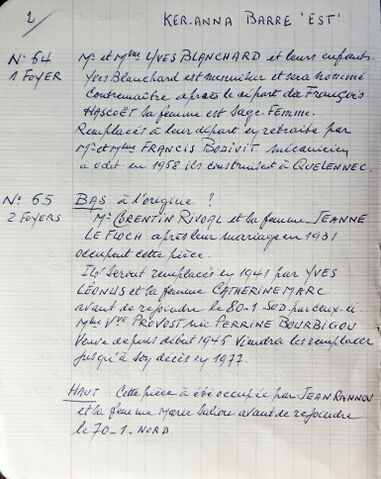 2/ KER-ANNA BARRE 'EST'
N° 64 Mr et Mme YVES BLANCHARD et leurs enfants.
1 FOYER Yves Blanchard est menuisier et sera nommé
Contremaître après le départ de François
HASCOËT sa femme est sage-Femme.
Remplacés à leur départ en retraite par
Mr et Mme FRANCIS BODIVIT mécanicien
en 1958 ils construisent à QUELENNEC.
N° 65 BAS à l'origine ?
2 FOYERS Mr CORENTIN RIVOAL et sa femme JEANNE
LE FLOCH après leur mariage en 1931
occupent cette pièce.
Ils seront remplacés en 1941 par YVES
LÉONUS et sa femme CATHERINE MARC
avant de rejoindre le 80-1 SUD par ceux-ci
Mme Vve PROVOST née PERRINE BOURBIGOU
Veuve depuis début 1945 viendra les remplacer
jusqu'à son décès en 1977.
HAUT Cette pièce a été occupée par JEAN RANNOU
et sa femme Marie avant de rejoindre
le 70-1-NORD.